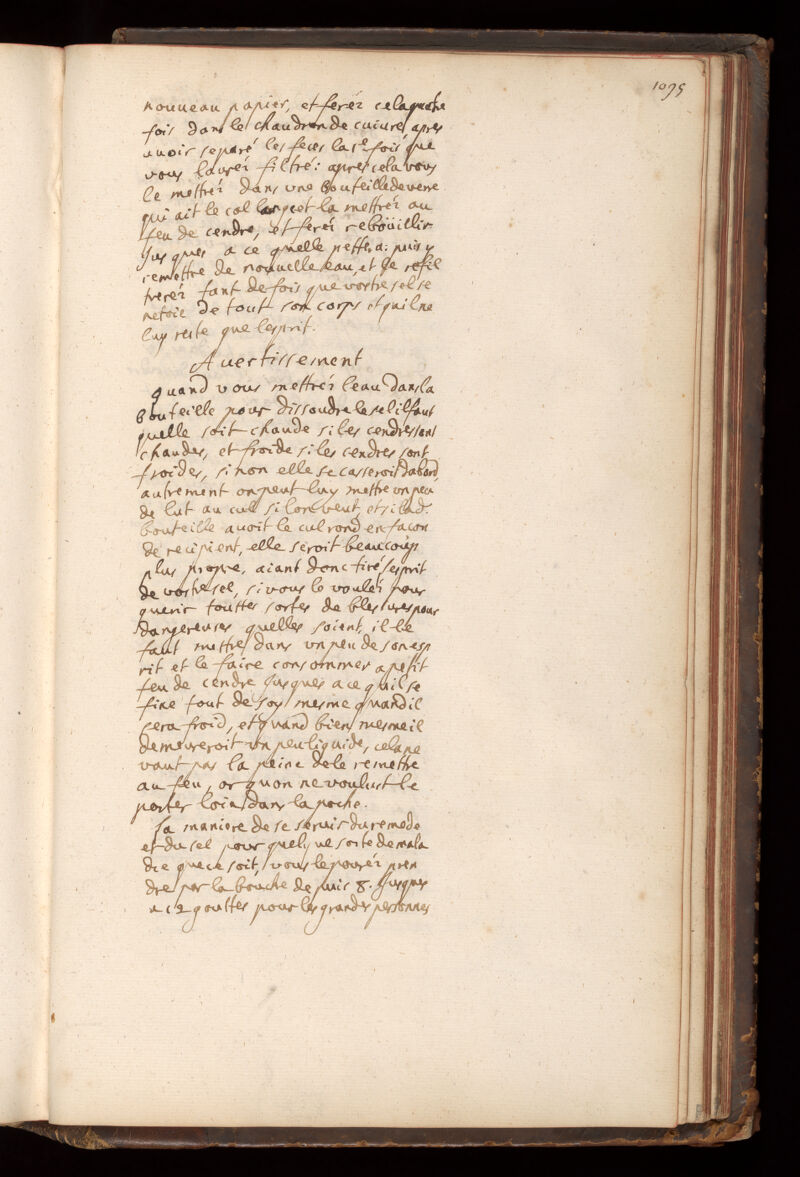 1095
nouveau papier, et ferér cela quatre
fois dans le chaudron de cuivre apres
avoir separé les feces la 1e fois que
vous l'aurér filtré: apres cela vous
le mettrér dans une bouteille de verre
qui ait le col large et la mettrér au
feu de cendre, et ferér reboüillir
jusques a ce quelle : puis y
remettre de nouvelle eau, et le refil
trerér tant de fois que vostre sel se
netoie de tout son corps et quil ne
luy reste que lesprit.
Avertissement
quand vous mettrér leau dans la
bouteille pour dissoudre le sel il faut
quelle soit chaude si les cendres sont
chaudes, et froide si les cendres sont
froides, sinon elle se casseroit dabord
autrement on peut luy mettre un peu
de lut au cul si lon veut, et si lad.
bouteille avoit le cul rond en facon
de recipient, elle seroit beaucoup
plus propre, aiant donc tiré lesprit
de vostre sel, si vous le voulér pour
guerir touttes sortes de blessures pour
dangereuses quelles soient, il le
faut mettre dans un peu de son esp
rit et le faire consommer a petit
feu de cendre jusques a ce quil se
fixe tout de soy mesme quand il
sera froid, et quand bien mesme il
demeureroit un peu liquide, cela ne
vaut pas la peine de le remettre
au feu, or quon ne voulust le
porter loin dans la poche.
La maniere de se servir du remede
et du sel pour quelque sorte de mala
die que ce soit, vous le pourér pren
dre par la bouche depuis 8. jusques
a 12 gouttes pour les grandes personnes